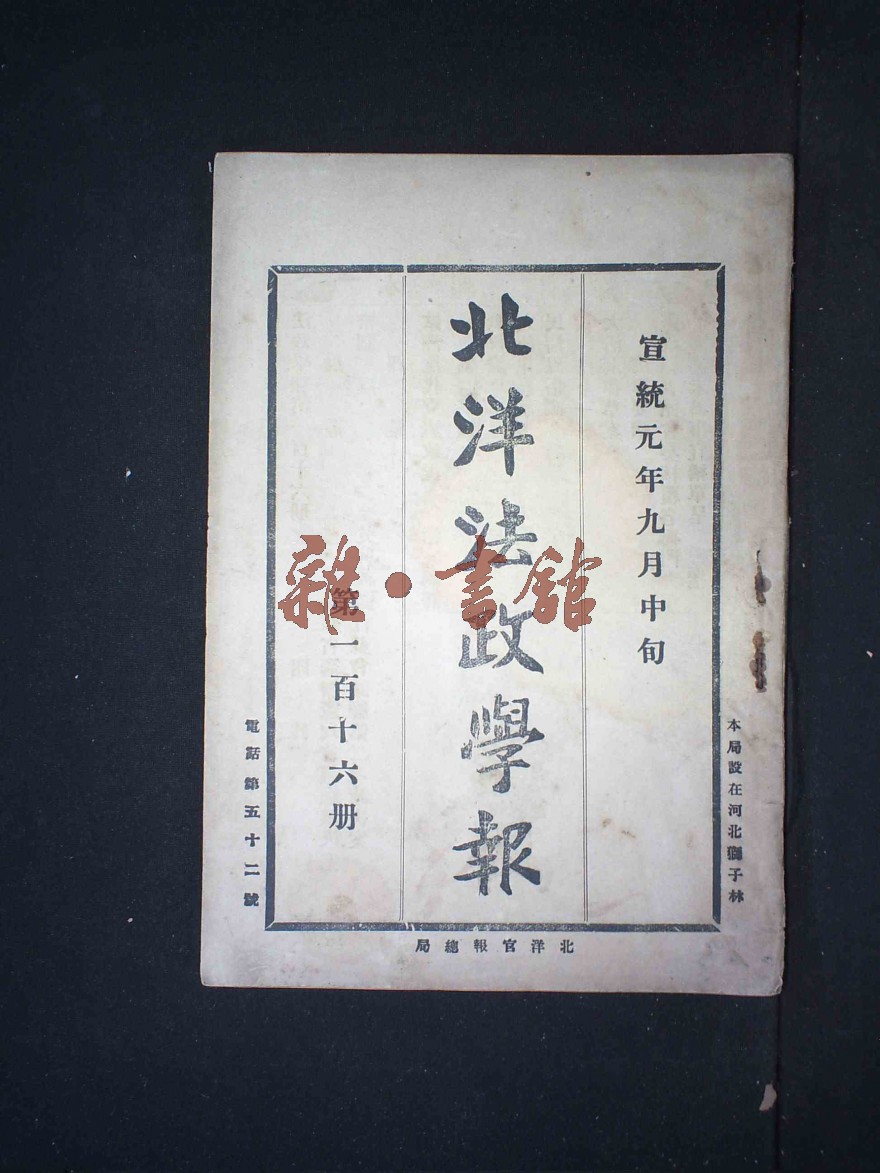 本局設在河北獅子林
宣統元年九月中旬
北洋法政學報
第一百十六册
電話第五十二號
北洋官報總局
雜·書館